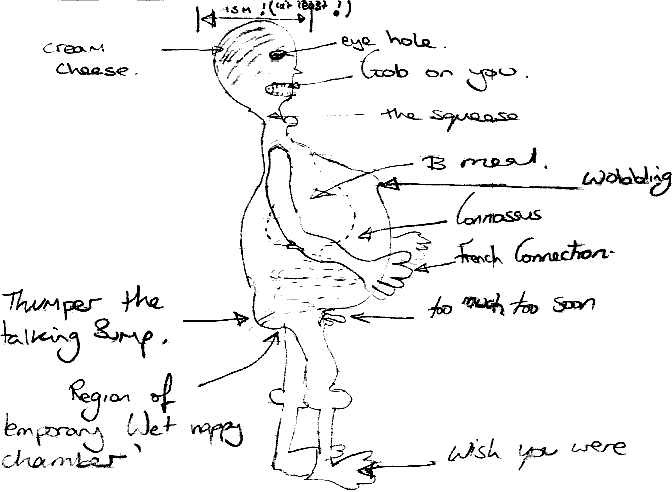 15M ! (at least !)
cream
cheese.
eye hole.
Gob on you.
the squeese
B meal.
Wobbling
Connossus
French Connection.
too much too soon
Thumper the
talking Bump.
Region of
temporary 'Wet nappy
chamber'
Wish you were